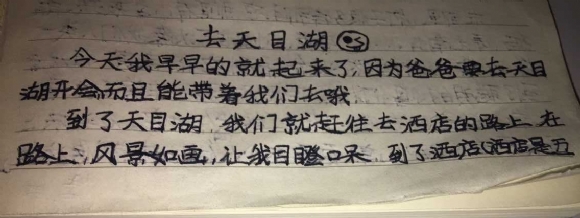 去天目湖
今天我早早的就起来了,因为爸爸要去天目
湖开会而且能带着我们去哦.
到了天目湖,我们就赶往去酒店的路上.在
路上,风景如画,让我目瞪口呆.到了酒店(酒店是五